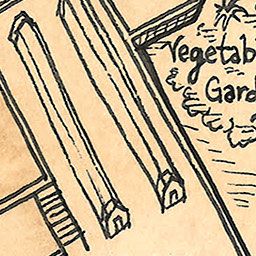 Vegetab
Gard